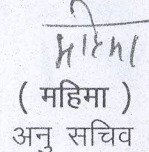 महिमा
( महिमा )
अनु सचिव